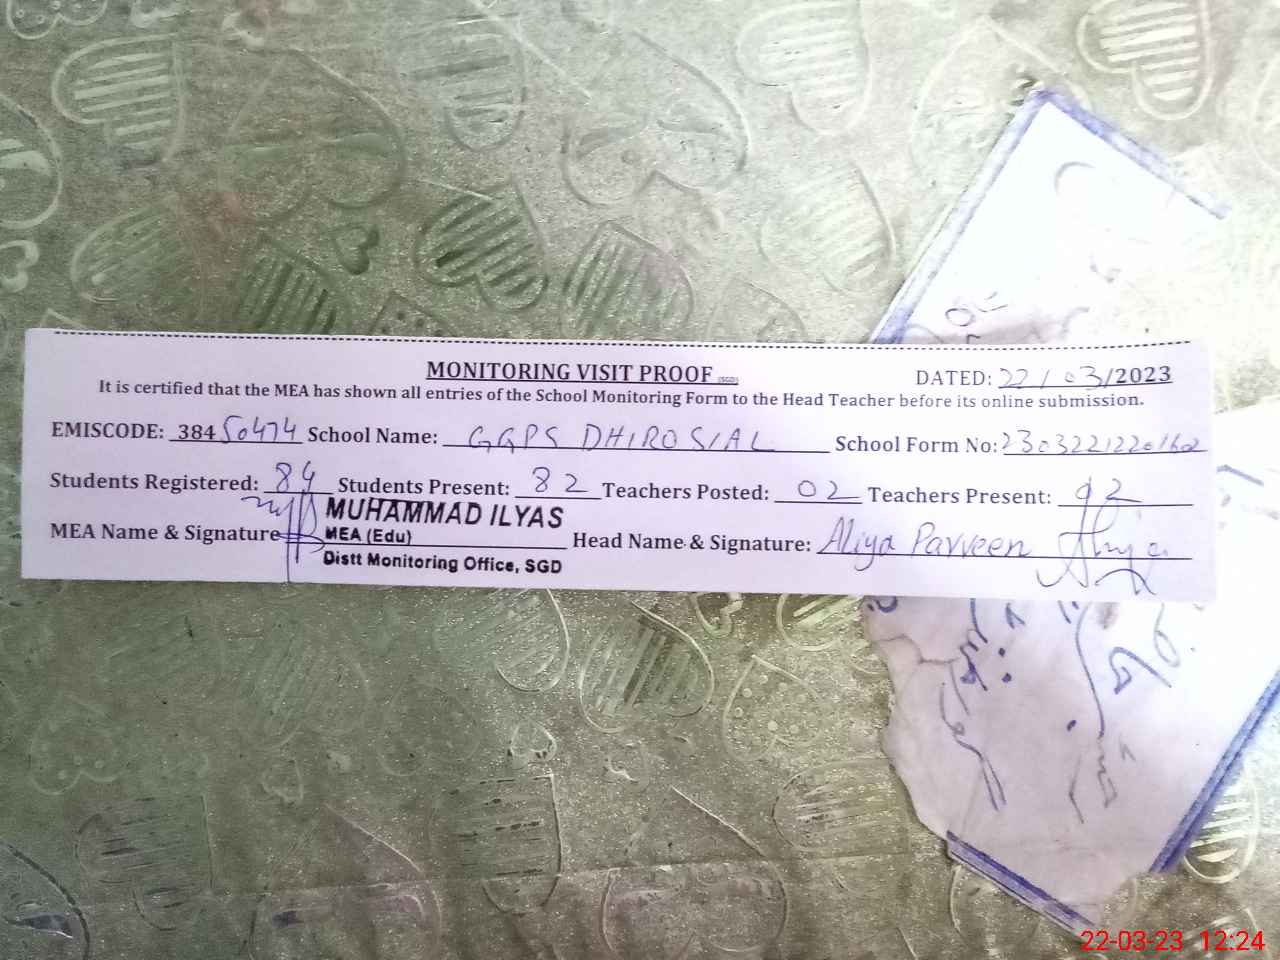 MONITORING VISIT PROOF (SGD) DATED: 22/03/2023
It is certified that the MEA has shown all entries of the School Monitoring Form to the Head Teacher before its online submission.
EMISCODE: 38450474 School Name: GGPS DHIROSIAL School Form No: 2303221220162
Students Registered: 84 Students Present: 82 Teachers Posted: 02 Teachers Present: 02
MEA Name & Signature MUHAMMAD ILYAS
MEA (Edu)
Distt Monitoring Office, SGD
Head Name & Signature: Aliya Parveen
22-03-23 12:24